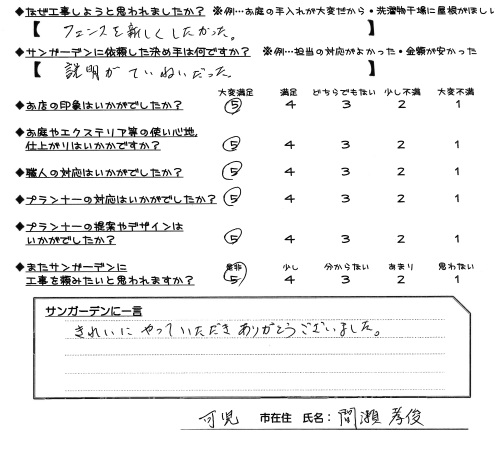 ◆なぜ工事しようと思われましたか? ※例…お庭の手入れが大変だから・洗濯物干場に屋根がほしい
【 フェンスを新しくしたかった。 】
◆サンガーデンに依頼した決め手は何ですか? ※例…担当の対応がよかった・金額が安かった
【 説明がていねいだった。 】
大変満足 満足 どちらでもない 少し不満 大変不満
◆お店の印象はいかがでしたか? 5 4 3 2 1
◆お庭やエクステリア等の使い心地、
仕上がりはいかがですか? 5 4 3 2 1
◆職人の対応はいかがでしたか? 5 4 3 2 1
◆プランナーの対応はいかがでしたか? 5 4 3 2 1
◆プランナーの提案やデザインは
いかがでしたか? 5 4 3 2 1
是非 少し 分からない あまり 思わない
◆またサンガーデンに
工事を頼みたいと思われますか? 5 4 3 2 1
サンガーデンに一言
きれいにやっていただきありがとうございました。
可児 市在住 氏名: 間瀬 孝俊